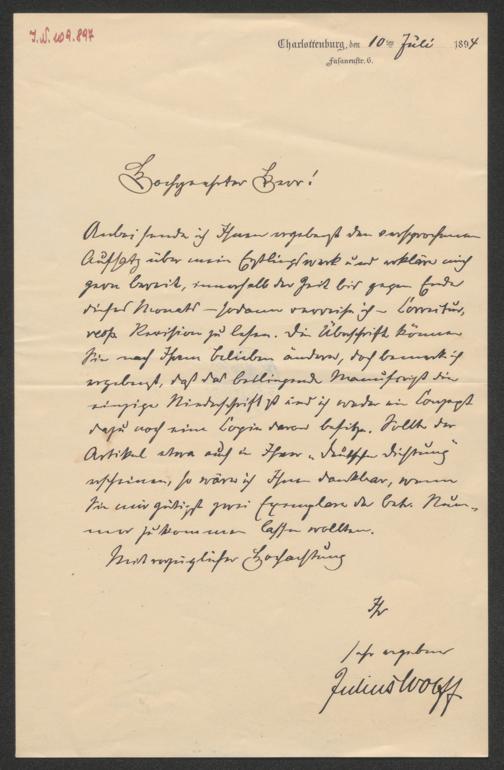 I.N. 109.897
Charlottenburg, den 10ten Juli 1894
Fasanenstr. 6.
Hochgeehrter Herr!
Anbei sende ich Ihnen ergebenst den versprochenen
Aufsatz über mein Erstlingswerk und erkläre mich
gern bereit, innerhalb der Zeit bis gegen Ende
dieses Monats – sodann verreise ich – Correctur,
resp. Revision zu lesen. Die Überschrift können
Sie nach Ihrem Belieben ändern, doch bemerke ich
ergebenst, daß das beiliegende Manuscript die
einzige Niederschrift ist und ich weder ein Concept
dazu noch eine Copie davon besitze. Sollte der
Artikel etwa auch in Ihrer „Deutschen Dichtung"
erscheinen, so wäre ich Ihnen dankbar, wenn
Sie mir gütigst zwei Exemplare der betr. Num-
mer zukommen lassen wollten.
Mit vorzüglicher Hochachtung
Ihr
sehr ergebener
Julius Wolff